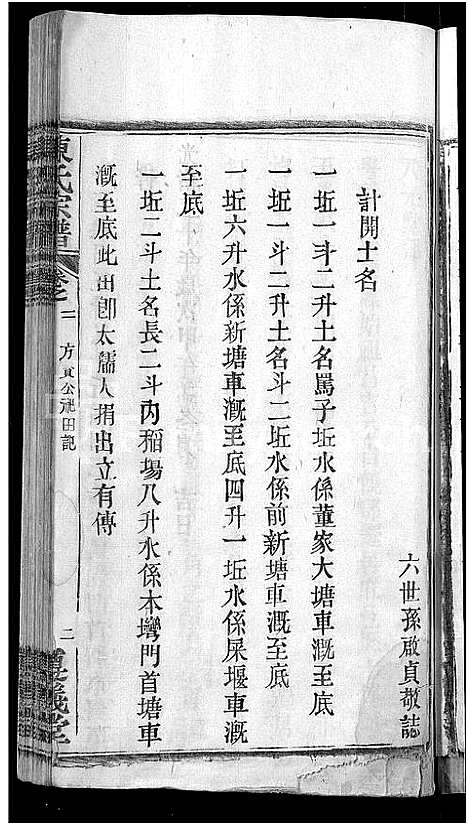 六世孫啟貞敬誌
計開土名
一坵一斗二升土名罵子坵水係董家大塘車溉至底
一坵一斗二升土名斗二坵水係前新塘車溉至底
一坵六升水係新塘車溉至底四升一坵水係屎堰車溉
至底
一坵二斗土名長二斗內稻場八升水係本塆門首塘車
溉至底此田卽太孺人捐出立有傳
陳氏宗譜
卷之二
方貢公祀田記
二